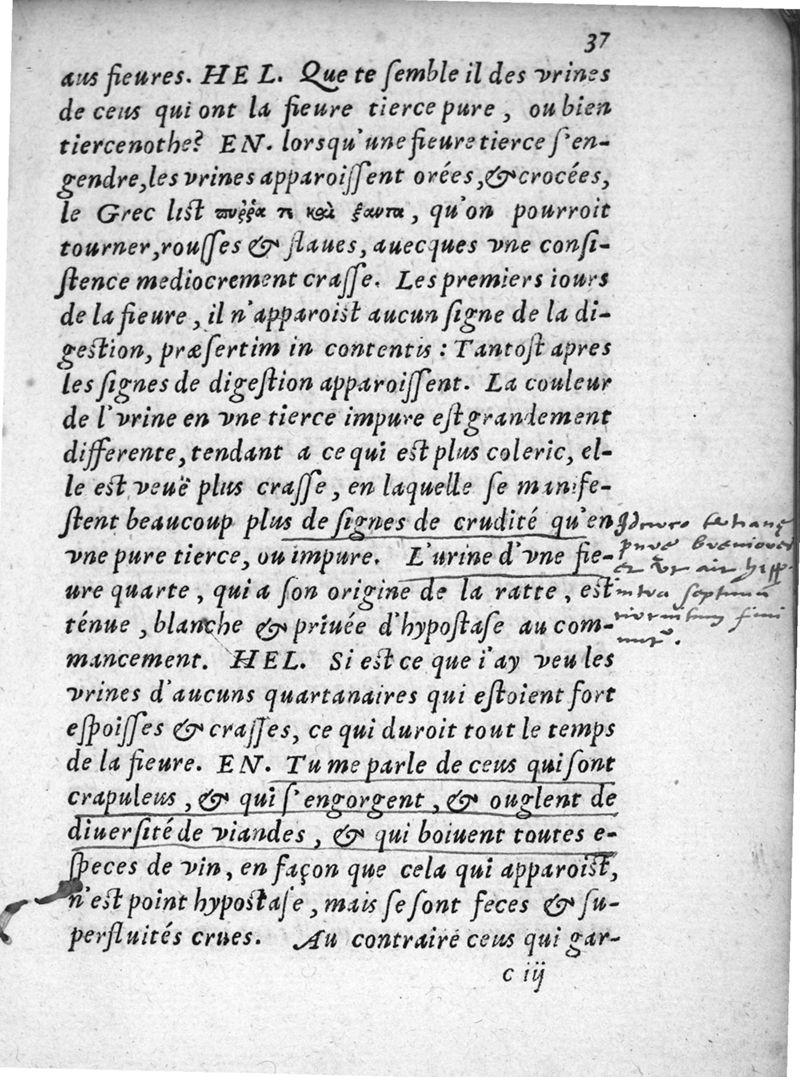 37
aus fieures. HEL. Que te ſemble il des vrines
de ceus qui ont la fieure tierce pure, ou bien
tiercenothe? EN. lorsqu'une fieure tierce s'en-
gendre, les vrines apparoiſſent orées, & crocées,
le Grec liſt πυῤῥά τι καὶ ξαντα, qu'on pourroit
tourner, rouſſes & flaues, auecques vne conſi-
ſtence mediocrement craſſe. Les premiers iours
de la fieure, il n'apparoiſt aucun ſigne de la di-
geſtion, præſertim in contentis : Tantoſt apres
les ſignes de digeſtion apparoiſſent. La couleur
de l'vrine en vne tierce impure eſt grandement
differente, tendant a ce qui eſt plus coleric, el-
le eſt veuë plus craſſe, en laquelle se manife-
ſtent beaucoup plus de ſignes de crudité qu'en
vne pure tierce, ou impure. L'urine d'vne fie-
ure quarte, qui a ſon origine de la ratte, eſt
ténue, blanche & priuée d'hypoſtaſe au com-
mancement. HEL. Si eſt ce que i'ay veu les
vrines d'aucuns quartanaires qui eſtoient fort
eſpoiſſes & craſſes, ce qui duroit tout le temps
de la fieure. EN. Tu me parle de ceus qui ſont
crapuleus, & qui s'engorgent, & ouglent de
diuerſité de viandes, & qui boiuent toutes e-
ſpeces de vin, en façon que cela qui apparoiſt,
n'eſt point hypoſtaſe, mais se ſont feces & ſu-
perfluités crues. Au contraire ceus qui gar-
c iij
intra septimum